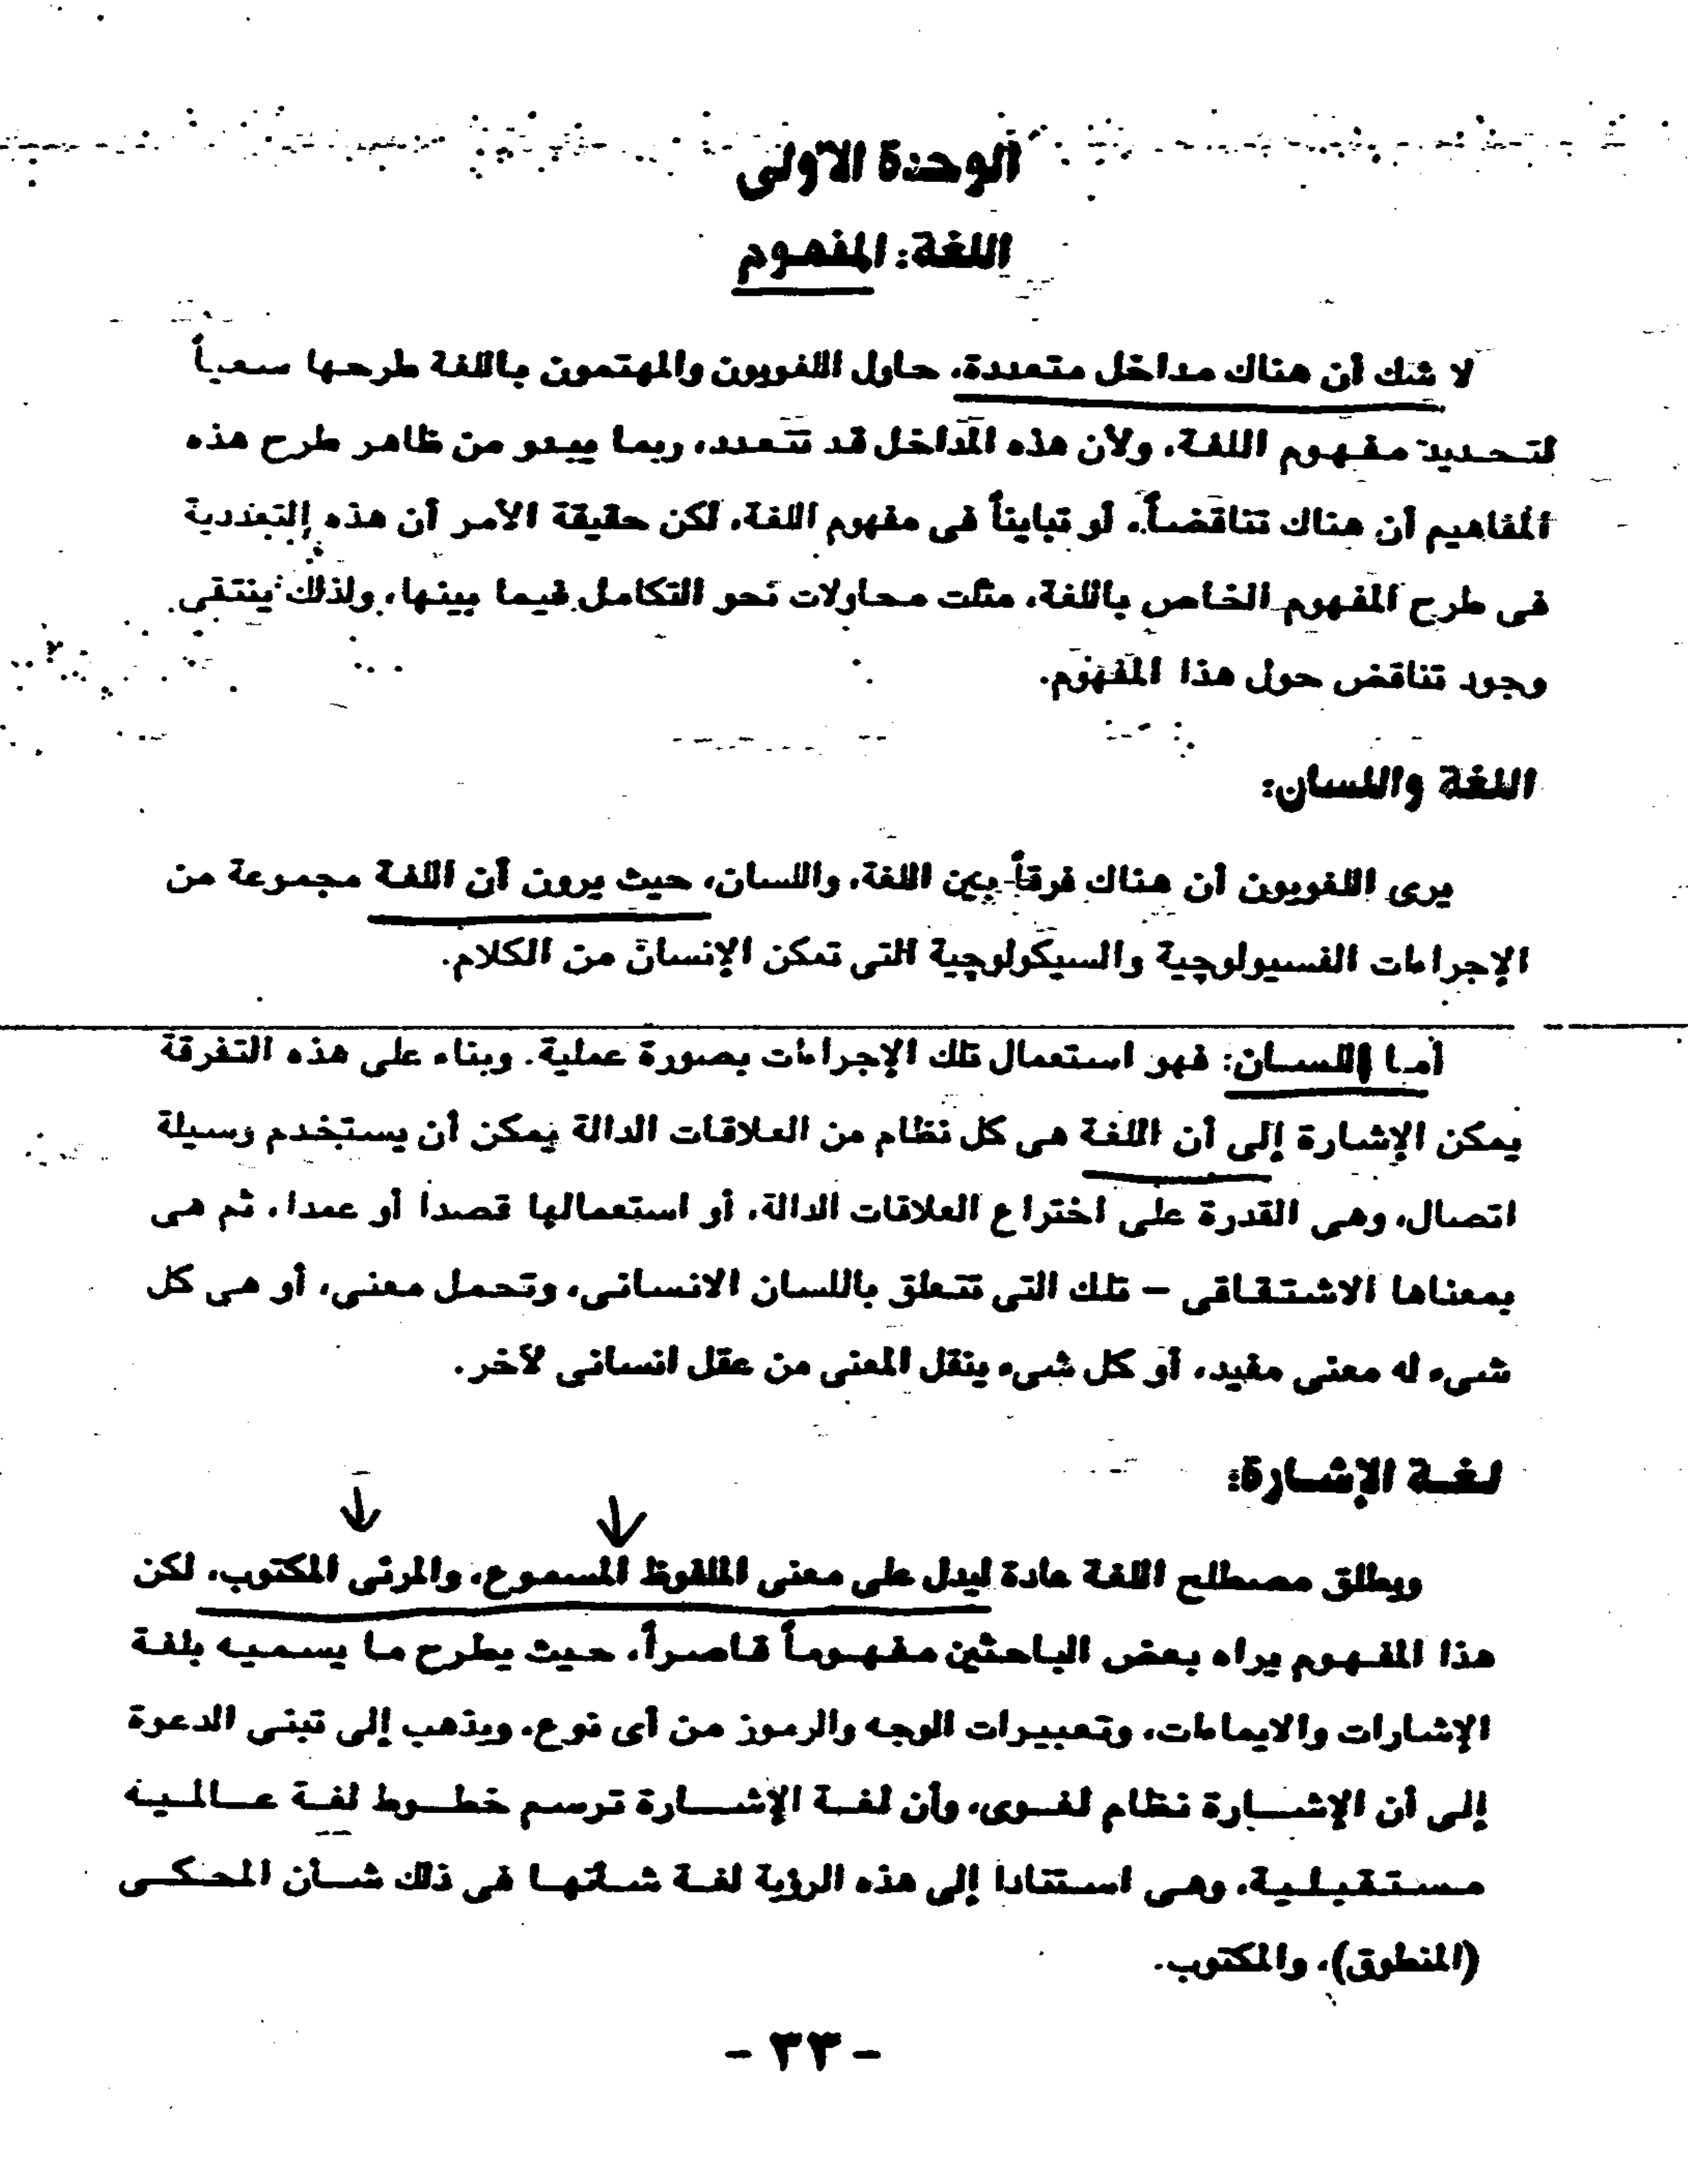 الوحدة الأولى
اللغة: المفهوم
لا شك أن هناك مداخل متعددة، حاول اللغويون والمهتمون باللغة طرحها سعياً
لتحديد مفهوم اللغة، ولأن هذه المداخل قد تتعدد، ربما يبدو من ظاهر طرح هذه
المفاهيم أن هناك تناقضاً، أو تبايناً فى مفهوم اللغة، لكن حقيقة الأمر أن هذه التعددية
فى طرح المفهوم الخاص باللغة، مثلت محاولات نحو التكامل فيما بينها، ولذلك ينتقى
وجود تناقض حول هذا المفهوم.
اللغة واللسان:
يرى اللغويون أن هناك فرقاً بين اللغة، واللسان، حيث يرون أن اللغة مجموعة من
الإجراءات الفسيولوجية والسيكولوجية التى تمكن الإنسان من الكلام.
أما اللسان: فهو استعمال تلك الإجراءات بصورة عملية. وبناء على هذه التفرقة
يمكن الإشارة إلى أن اللغة هى كل نظام من العلاقات الدالة يمكن أن يستخدم وسيلة
اتصال، وهى القدرة على اختراع العلاقات الدالة، أو استعمالها قصدا أو عمدا، ثم هى
بمعناها الاشتقاقى - تلك التى تتعلق باللسان الانسانى، وتحمل معنى، أو هى كل
شىء له معنى مفيد، أو كل شىء ينقل المعنى من عقل انسانى لآخر.
لغة الإشارة:
ويطلق مصطلح اللغة عادة ليدل على معنى الملفوظ المسموع، والمرئى المكتوب، لكن
هذا المفهوم يراه بعض الباحثين مفهوماً قاصراً، حيث يطرح ما يسميه بلغة
الإشارات والايماءات، وتعبيرات الوجه والرموز من أى نوع، ويذهب إلى تبنى الدعوة
إلى أن الإشارة نظام لغوى، وأن لغة الإشارة ترسم خطوط لغة عالميه
مستقبلية، وهى استنادا إلى هذه الرؤية لغة شأنها فى ذلك شأن المحكى
(المنطوق)، والمكتوب.
- ٣٣ -